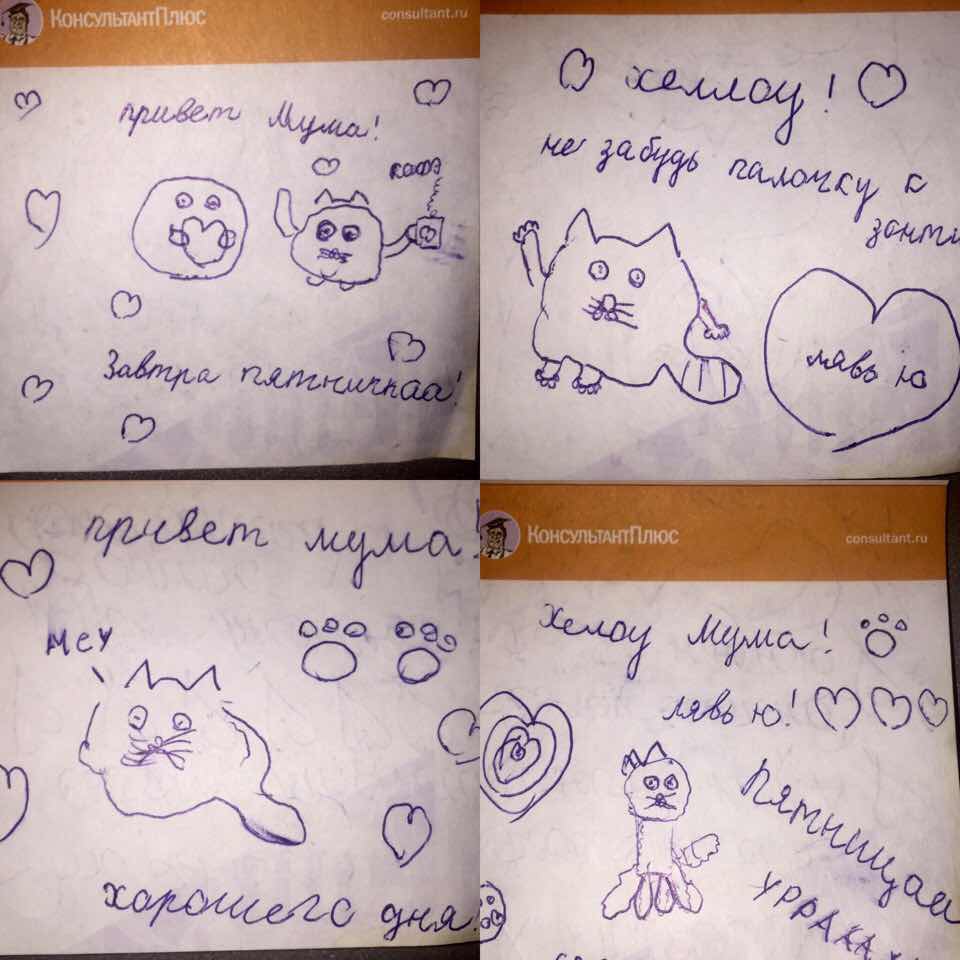 КонсультантПлюс consultant.ru
привет Мума!
кофэ
Завтра пятничнаа!
хеллоу!
не забудь палочку к
зонти
лявь ю
привет мума!
меу
хорошего дня!
КонсультантПлюс consultant.ru
Хелоу Мума!
лявь ю!
Пятницаа
УРРАААА